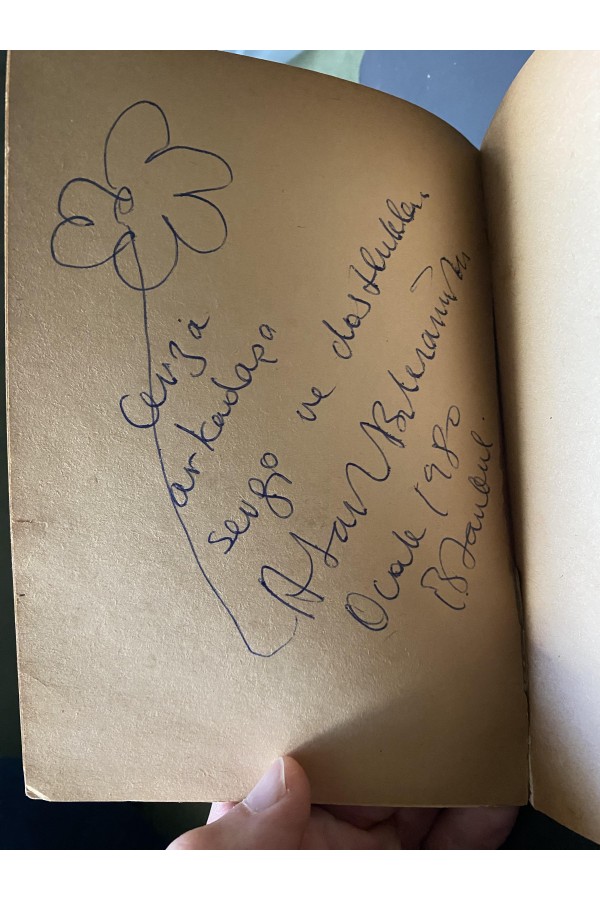 arkadaşa
sevgi ve dostlukla.
Ataol Behramoğlu
Ocak 1980
İstanbul.